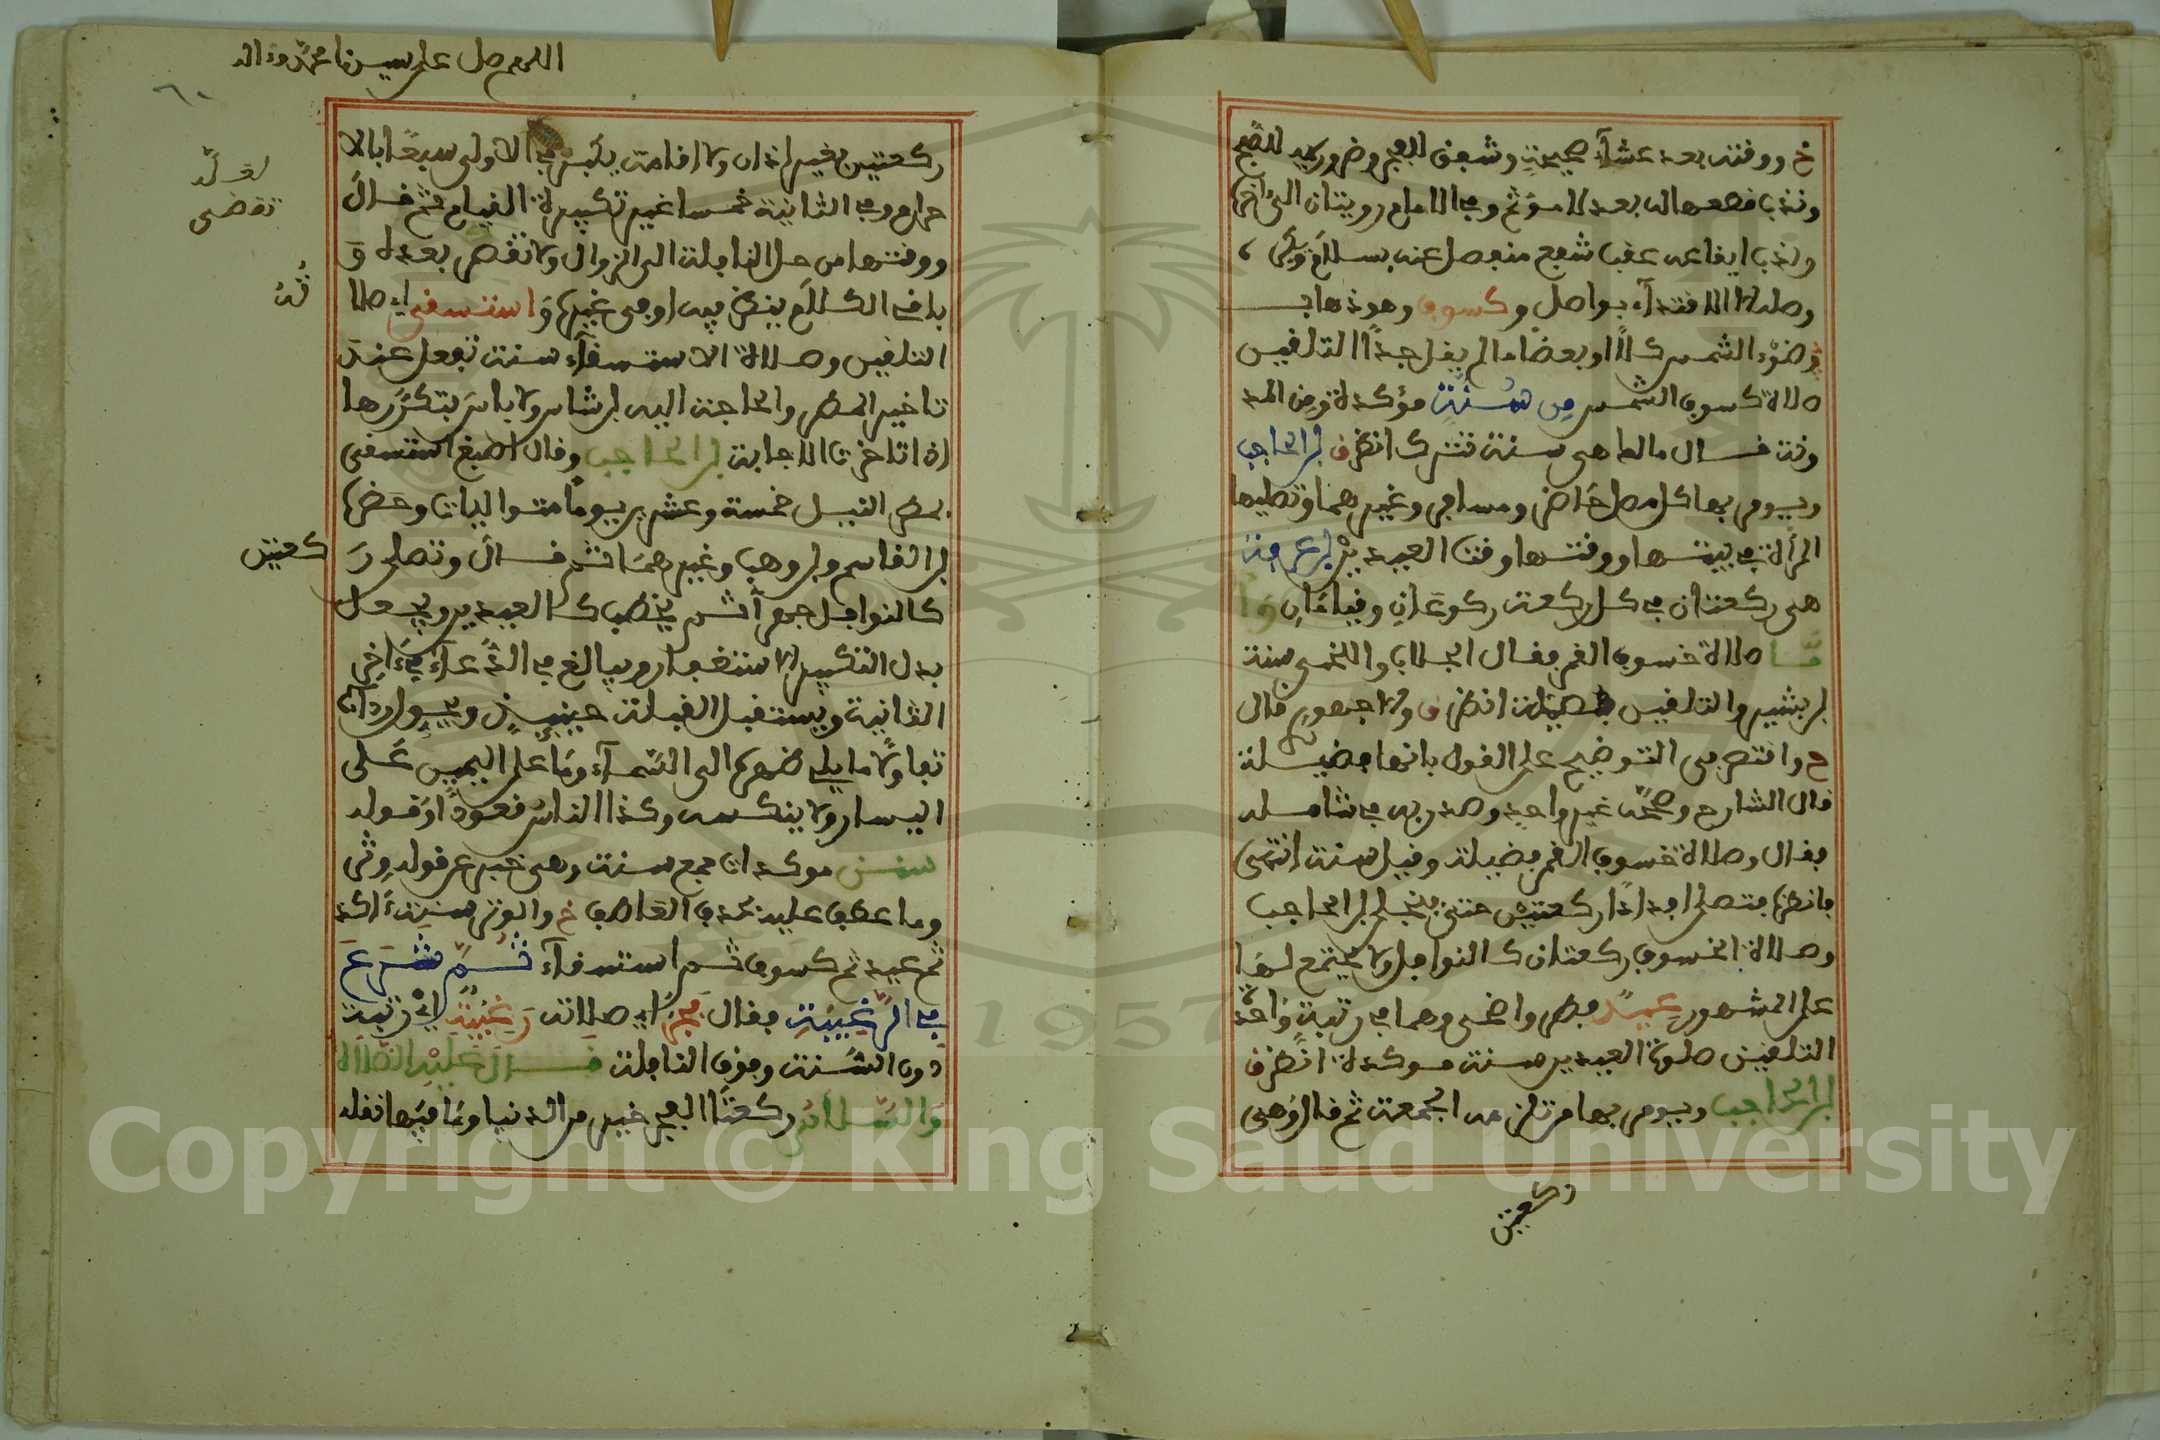 خ ووقته بعد عشاء صحيحة وشفق للفجر وضروريه للصبح
وندب فعلها له بعد لا مؤتم وفي الامام روايتان الى اخرها
وندب ايقاعه عقب شفع منفصل عنه بسلام
وصله الا لاقتداء بواصل وكسوف وهو ذهاب
ضوء الشمس كلا او بعضا ما لم يقل جدا التلقين
صلاة كسوف الشمس من سنة مؤكدة ومن المد
ونة قال مالك هي سنة تترك انظر ق ابن الحاجب
ويومر بها كل مصل حاضر ومسافر وغيرهما وتصليها
المرأة في بيتها ووقتها وقت العيدين ابن عرفة
هي ركعتان في كل ركعة ركوعان وقيامان وا
ما صلاة خسوف القمر فقال الجلاب واللخمي سنة
ابن بشير والتلقين فضيلة انظر ق ولا جمهور قال
ح واقتصر في التوضيح على القول بانها فضيلة
قال الشارح وصححه غير واحد وصدر به في شامله
فقال وصلاة خسوف القمر فضيلة وقيل سنة انتهى
فانظرها فتصلى افذاذا ركعتين حتى ينجلي ابن الحاجب
وصلاة الخسوف ركعتان كالنوافل ولا يجتمع لها
على المشهور عيد فطر واضحى وهما في رتبة واحدة
التلقين صلوة العيدين سنة موكدة انظر ق
ابن الحاجب ويومر بها من تلزمه الجمعة ثم قال وهي
ركعتين
اللهم صل على سيدنا محمد وءاله
٦٠
ركعتين بغير اذان ولا اقامة يكبر في الاولى سبعا بالا
حرام وفي الثانية خمسا غير تكبيرة القيام ثم قال
ووقتها من حل النافلة الى الزوال ولا تقضى بعده و
باقي الكلام ينظر فيه او في غيره واستسقى اي صلا
التلقين وصلاة الاستسقاء سنة تفعل عند
تاخير المطر والحاجة اليه ابن شاس ولا باس بتكررها
اذا تاخرت الاجابة ابن الحاجب وقال اصبغ استسقى
بمصر النيل خمسة وعشرين يوما متواليات وحضرها
ابن القاسم وابن وهب وغيرهما ثم قال وتصلى ر
كعتين
كالنوافل جهرا ثم يخطب كالعيدين ويجعل
بدل التكبير الاستغفار ويبالغ في الدعاء في اخر
الثانية ويستقبل القبلة حينئذ ويحول رداءه
تفاولا ما يلي ظهره الى السماء وما على اليمين على
اليسار ولا ينكسه وكذا الناس قعودا وقوله
سنن موكدات جمع سنة وهي خبر عن قوله وتر
وما عطف عليه بحذف العاطف خ والوتر سنة ءاكد
ثم عيد ثم كسوف ثم استسقاء ثم شرع
في الرغيبة فقال فجر اي صلاته رغيبة اي رتبة
دون السنة وفوق النافلة قال عليه الصلاة
والسلام ركعتا الفجر خير من الدنيا وما فيها نقله
Copyright © King Saud University
1957